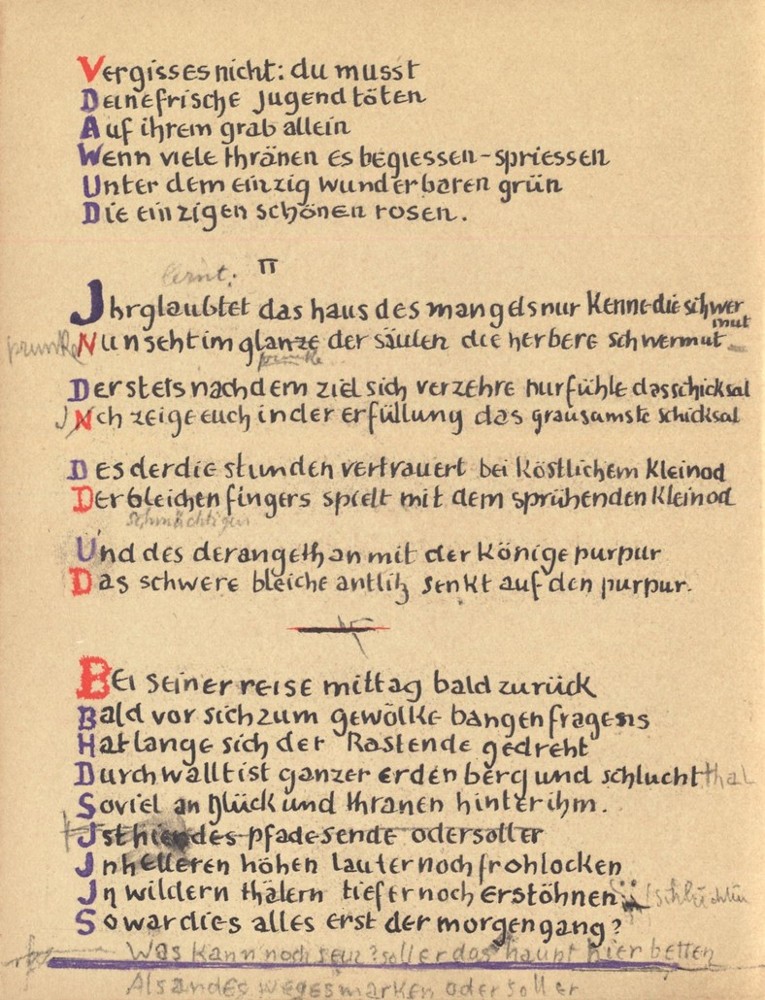 Vergiss es nicht: du musst
Deine frische jugend töten
Auf ihrem grab allein
Wenn viele thränen es begiessen - spriessen
Unter dem einzig wunderbaren grün
Die einzigen schönen rosen.
II
lernt:
Ihr glaubtet das haus des mangels nur kenne die schwermut
prunke Nun seht im glanze der säulen die herbere schwermut
prunke
Der stets nach dem ziel sich verzehre nur fühle das schicksal
Ich zeige euch in der erfüllung das grausamste schicksal
Des der die stunden vertrauert bei köstlichem kleinod
Der bleichen fingers spielt mit dem sprühenden kleinod
schmächtigen
Und des der angethan mit der könige purpur
Das schwere bleiche antlitz senkt auf den purpur.
Bei seiner reise mittag bald zurück
Bald vor sich zum gewölke bangen fragens
Hat lange sich der Rastende gedreht
Durchwallt ist ganzer erden berg und schlucht thal
Soviel an glück und thranen hinter ihm.
Ist hier des pfades ende oder soll er
In helleren höhen lauter noch frohlocken
In wildern thälern tiefer noch erstöhnen schlüchten
So war dies alles erst der morgengang?
Was kann noch sein? soll er das haupt hier betten
Als an des weges marken oder soll er